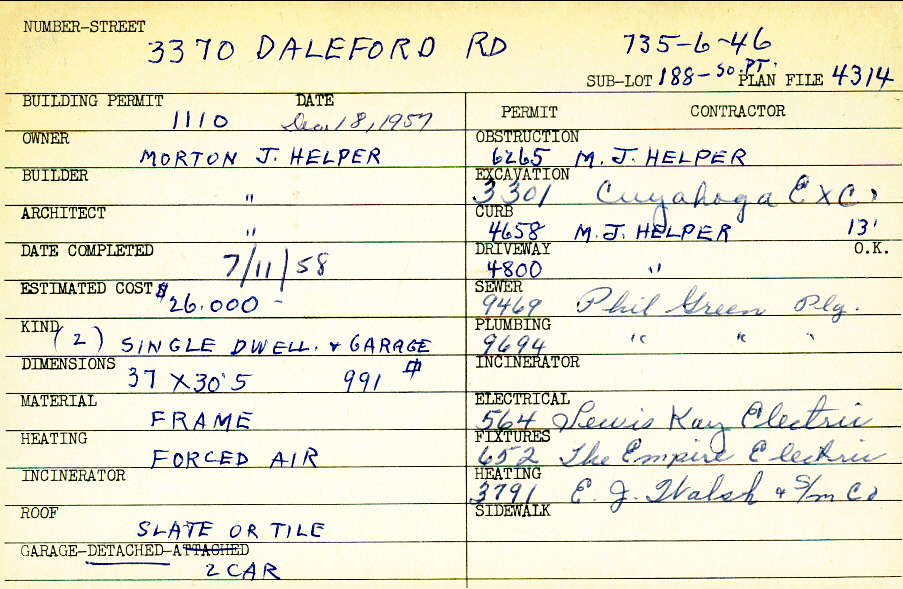 NUMBER-STREET
3370 DALEFORD RD 735-6-46
SUB-LOT 188-SO.PT. PLAN FILE 4314
BUILDING PERMIT DATE
1110 Dec. 18, 1957
OWNER
MORTON J. HELPER
BUILDER
"
ARCHITECT
"
DATE COMPLETED
7/11/58
ESTIMATED COST $26.000 -
KIND (2) SINGLE DWELL. & GARAGE
DIMENSIONS
37 X 30'5 991 #
MATERIAL
FRAME
HEATING
FORCED AIR
INCINERATOR
ROOF
SLATE OR TILE
GARAGE-DETACHED-ATTACHED
2 CAR
PERMIT CONTRACTOR
OBSTRUCTION
6265 M. J. HELPER
EXCAVATION
3301 Cuyahoga Exc.
CURB
4658 M. J. HELPER 13'
DRIVEWAY O.K.
4800 "
SEWER
9469 Phil Green Plg.
PLUMBING
9694 " " "
INCINERATOR
ELECTRICAL
564 Lewis Kay Electric
FIXTURES
652 The Empire Electric
HEATING
3791 E. J. Walsh & S/m Co
SIDEWALK